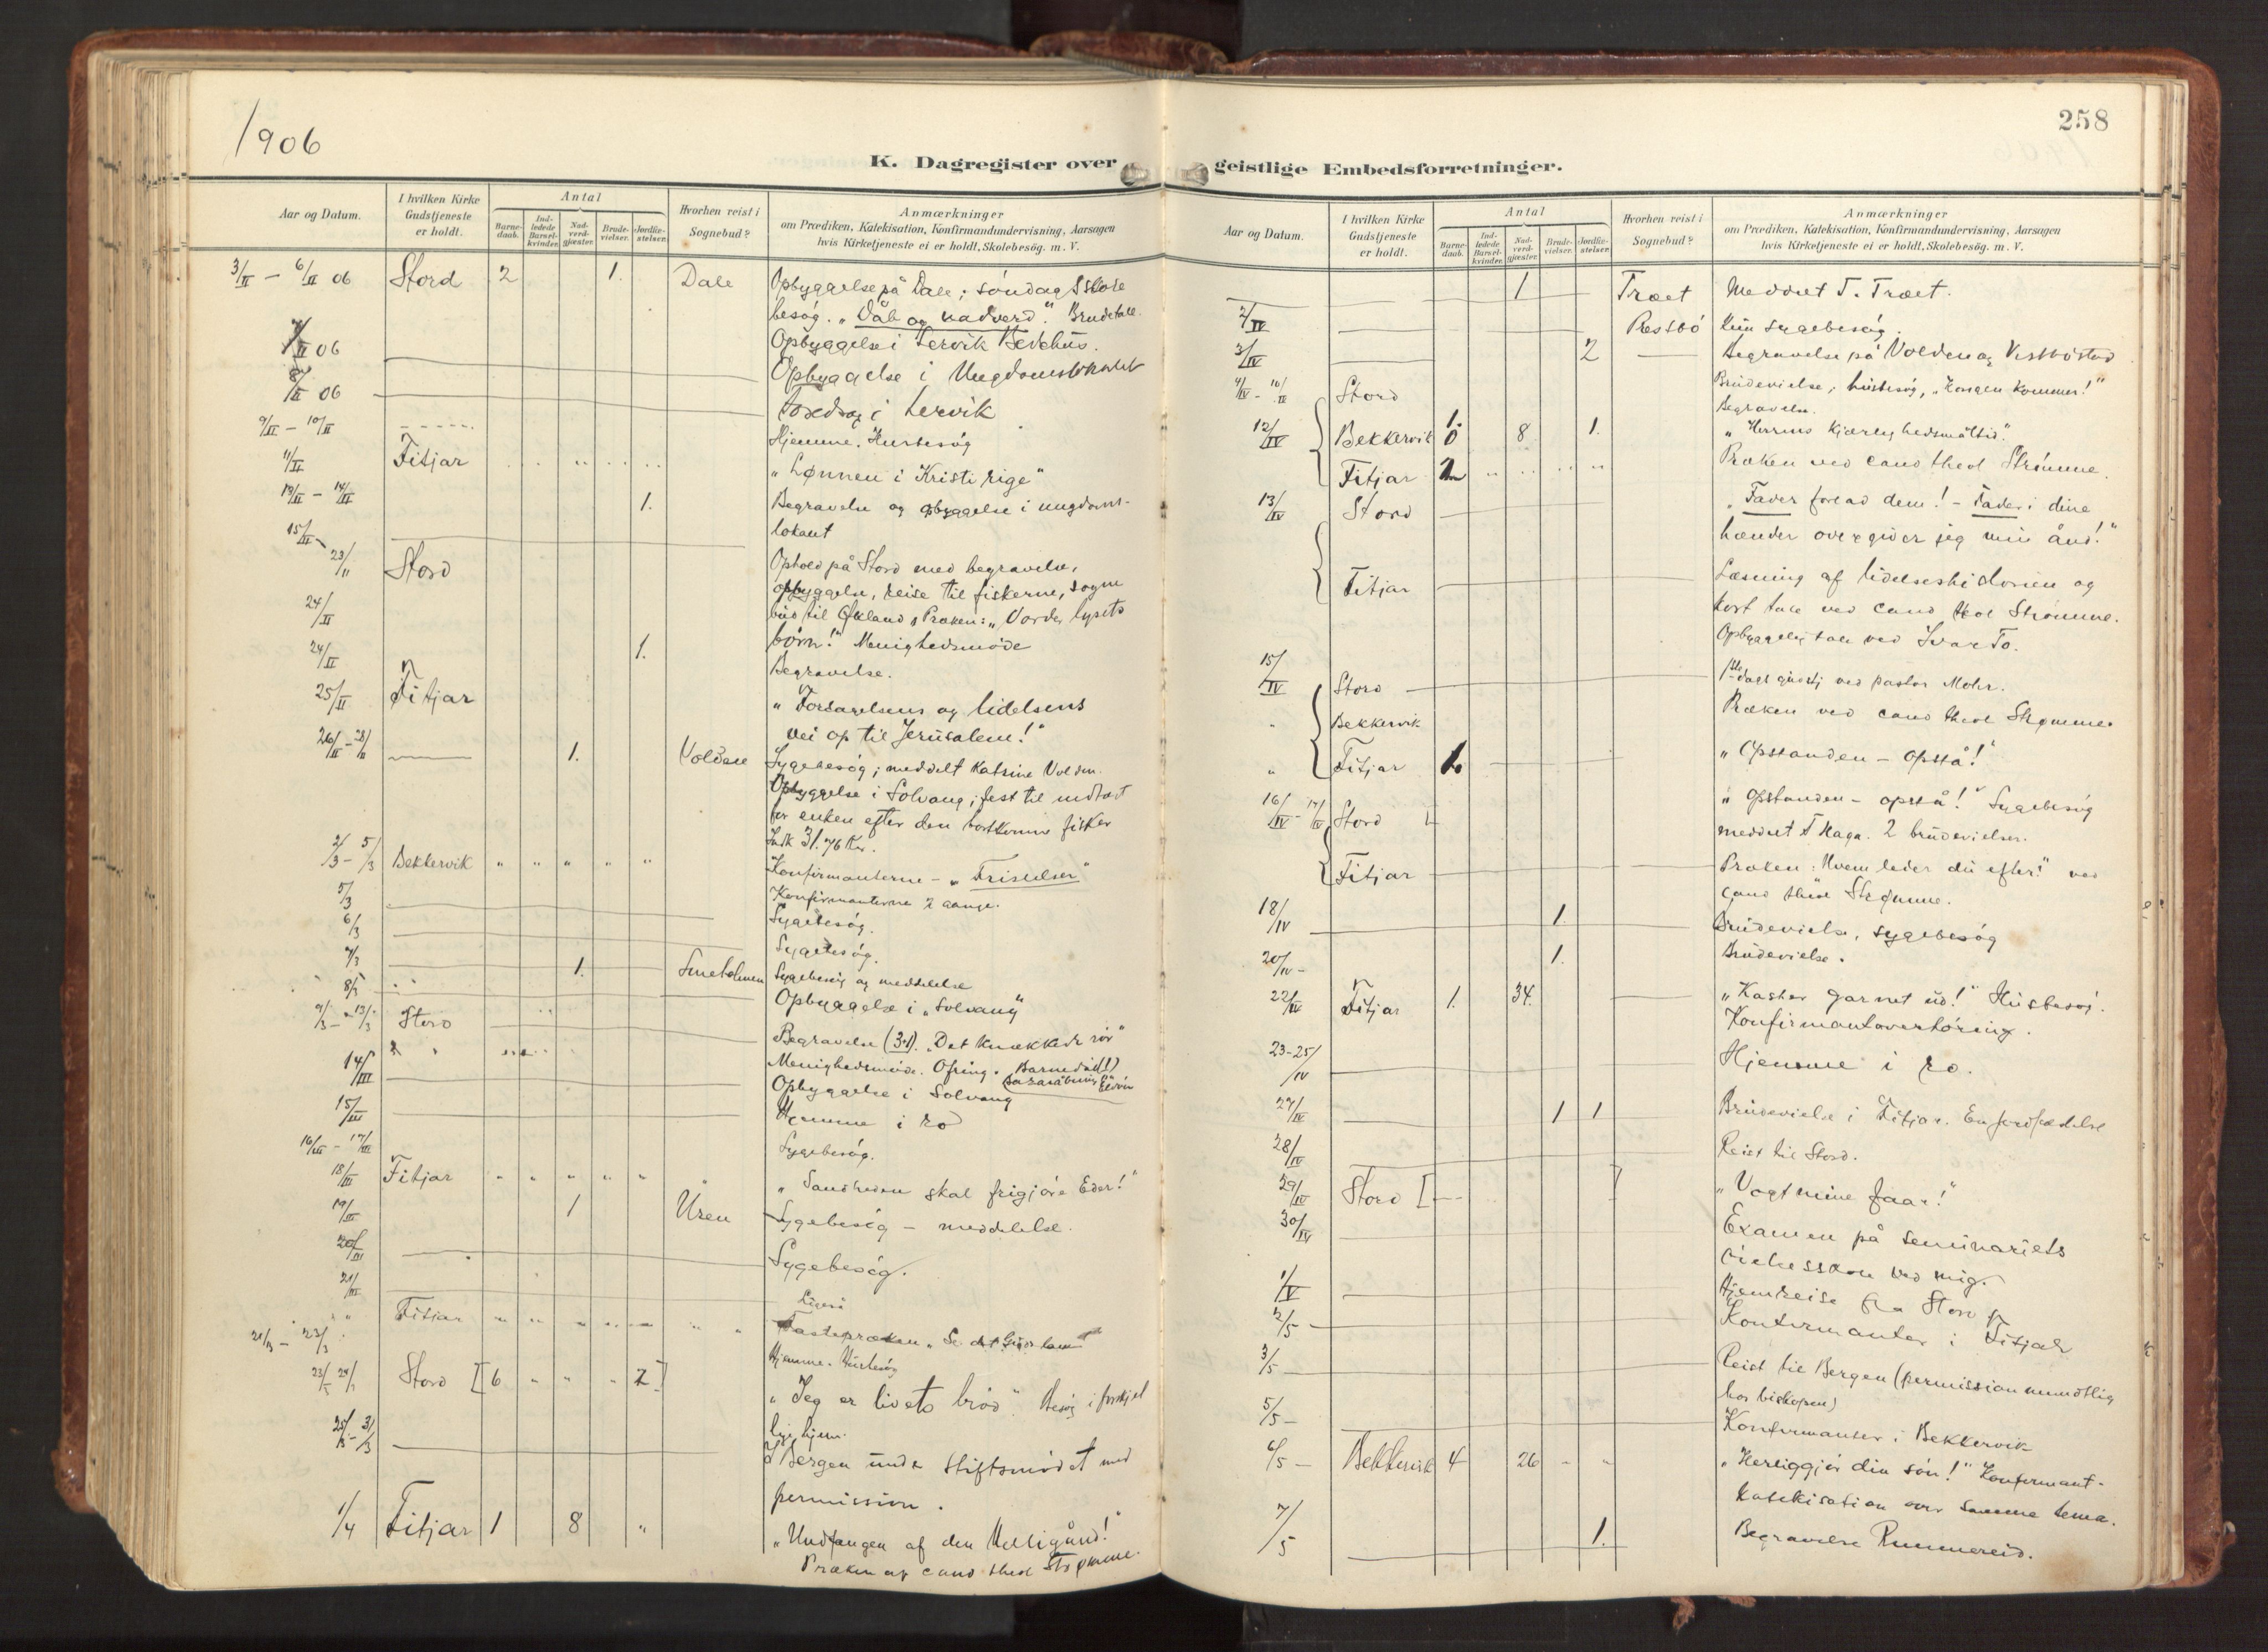 1906
258
K. Dagregister over geistlige Embedsforretninger.
Aar og Datum.
I hvilken Kirke Gudstjeneste er holdt.
Antal
Barne-daab.
Ind-ledede Barsel-kvinder.
Nad-verd-gjæster.
Brude-vielser.
Jordfæ-stelser.
Hvorhen reist i Sognebud?
Anmærkninger
om Prædiken, Katekisation, Konfirmandundervisning, Aarsagen
hvis Kirketjeneste ei er holdt, Skolebesøg. m. V.
3/II - 6/II 06 Stord 2 1. Dale Opbyggelse på Dale; søndagsskole
besøg. "Dåb og nadverd". Brudetale.
7/II 06 Opbyggelse i Lervik Bedehus.
8/II 06 Opbyggelse i Ungdomslokalet
Foredrag i Lervik
9/II - 10/II Hjemme. Husbesøg
11/II Fitjar "Lønnen i Kristi rige"
13/II - 14/II 1. Begravelse og opbyggelse i ungdoms-
lokalet
15/II - 23/II Stord Ophold på Stord med begravelse,
opbyggelse, reise til fiskerne, sogne
bud til Økland, Præken: "Vorder lysets
24/II børn!" Menighedsmøde
24/II 1. Begravelse.
25/II Fitjar "Forsagelsens og lidelsens
vei op til Jerusalem!"
26/II - 28/II 1. Volden Sygebesøg; meddelt Katrine Volden.
Opbyggelse i Solvang; fest til indtægt
for enken efter den bortkomne fisker
Indk 31.76 Kr.
2/3 - 5/3 Bekkervik " " " " " Konfirmanterne - "Fristelser"
5/3 Konfirmanterne 2 gange.
6/3 Sygebesøg.
7/3 Sygebesøg.
1. Smeholmen Sygebesøg og meddelelse
8/3 Opbyggelse i "Solvang"
9/3 - 13/3 Stord Begravelse (3+1). "Det knækkede rør"
Menighedsmøde. Ofring. Barnedåb(1)
14/III Opbyggelse i Solvang
15/III Hjemme i ro
16/III - 17/III Sygebesøg.
18/III Fitjar " " " " " "Sandheden skal frigjøre Eder!"
19/III 1 Uren Sygebesøg - meddelelse.
20/III Sygebesøg.
21/III Ligeså
" " Fitjar Fastepræken "Se det Guds lam"
21/3 - 23/3 Hjemme. Husbesøg
23/3 24/3 Stord [6 " " " 2] "Jeg er livets brød". Besøg i forskjel
lige hjem.
25/3 - 31/3 I Bergen under stiftsmødet med
permission.
1/4 Fitjar 1 8 " "Undfangen af den Helligånd!"
Præken af cand theol Strømme.
Aar og Datum.
I hvilken Kirke Gudstjeneste er holdt.
Antal
Barne-daab.
Ind-ledede Barsel-kvinder.
Nad-verd-gjæster.
Brude-vielser.
Jordfæ-stelser.
Hvorhen reist i Sognebud?
Anmærkninger
om Prædiken, Katekisation, Konfirmandundervisning, Aarsagen
hvis Kirketjeneste ei er holdt, Skolebesøg. m. V.
1 Træet Meddelt T. Træet.
2/IV Prestbø Kun sygebesøg.
3/IV 2 Begravelse på Volden og Vestbøstad
4/IV - 10/IV Stord Brudevielse, husbesøg, "Kongen kommer!"
Begravelse.
12/IV Bekkervik 8 1. "Herrens kjærlighedsmåltid".
Fitjar Præken ved cand theol Strømme.
13/IV Stord "Fader forlad dem! - Fader i dine
hænder overgiver jeg min ånd!"
Fitjar Læsning af lidelseshistorien og
kort tale ved cand theol Strømme.
Opbyggelig tale ved
15/IV Stord 1ste dags gudstj ved pastor Mohr.
" Bekkervik Præken ved cand theol Strømme.
" Fitjar 1. "Opstanden - opstå!"
16/IV - 17/IV Stord "Opstanden - opstå!" Sygebesøg
meddelt T Haga. 2 brudevielser.
Fitjar Præken: "Hvem leder du efter?" ved
cand theol Strømme.
18/IV 1. Brudevielse, sygebesøg
20/IV - 1. Brudevielse.
22/IV Fitjar 1. 34. "Kaster garnet ud!" Husbesøg.
Konfirmantoverhøring.
23-25/IV Hjemme i ro.
27/IV 1 1 Brudevielse i Fitjar. En jordfæstelse
28/IV Reist til Stord.
29/IV Stord [ ] "Vogt mine faar!"
30/IV Examen på seminariets
øvelsesskole ved mig.
1/V Hjemreise fra Stord
2/5 - Konfirmanter i Fitjar
3/5 - Reist til Bergen (permission mundtlig
hos biskopen)
5/5 - Konfirmanter i Bekkervik
6/5 - Bekkervik 4 26 " " "Herliggjør din søn!" Konfirmant-
katekisation over samme tema.
7/5 1. Begravelse Rummereid.